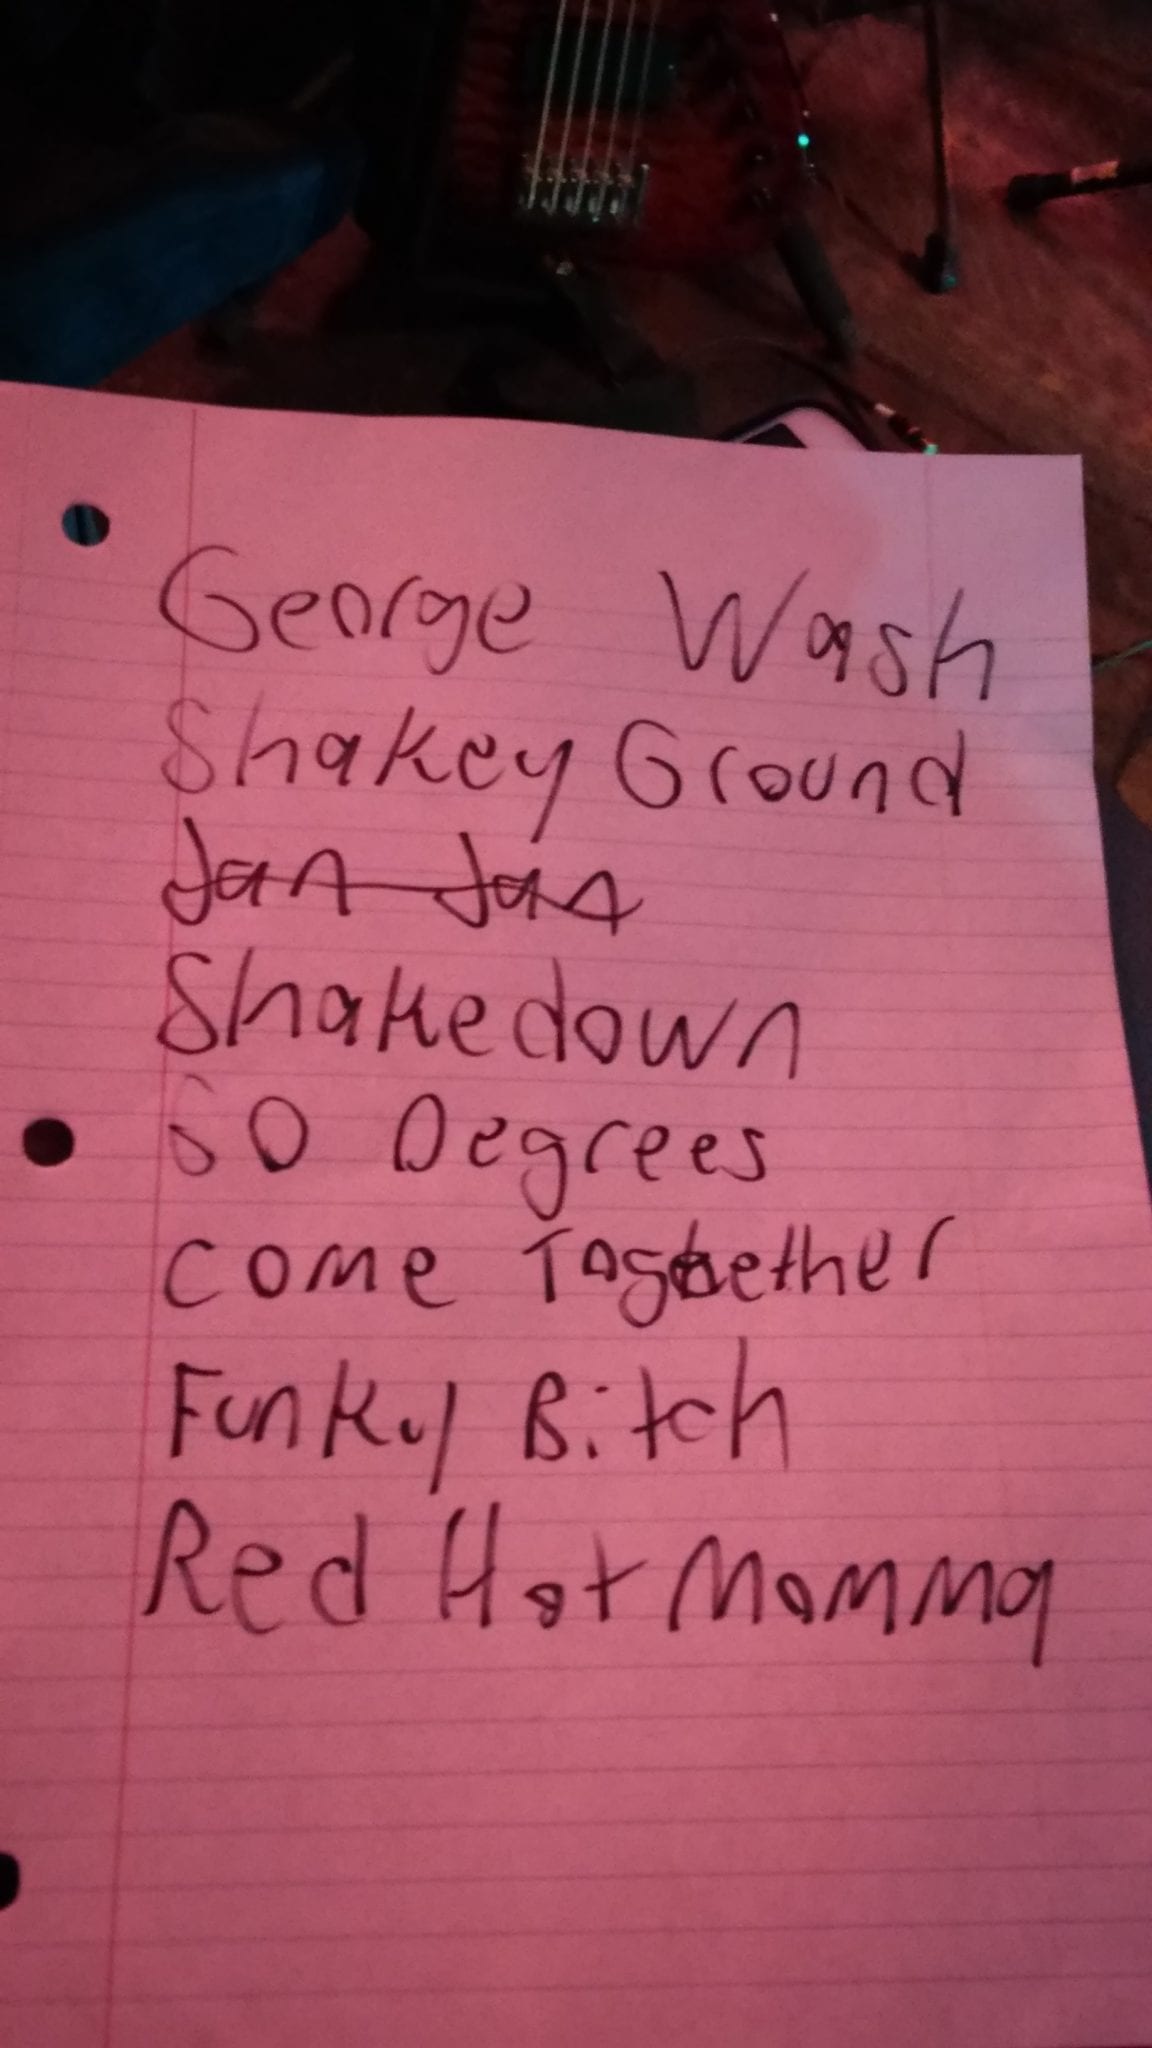 George Wash
Shakey Ground
Jan Jan
Shakedown
50 Degrees
Come Together
Funky Bitch
Red Hot Momma